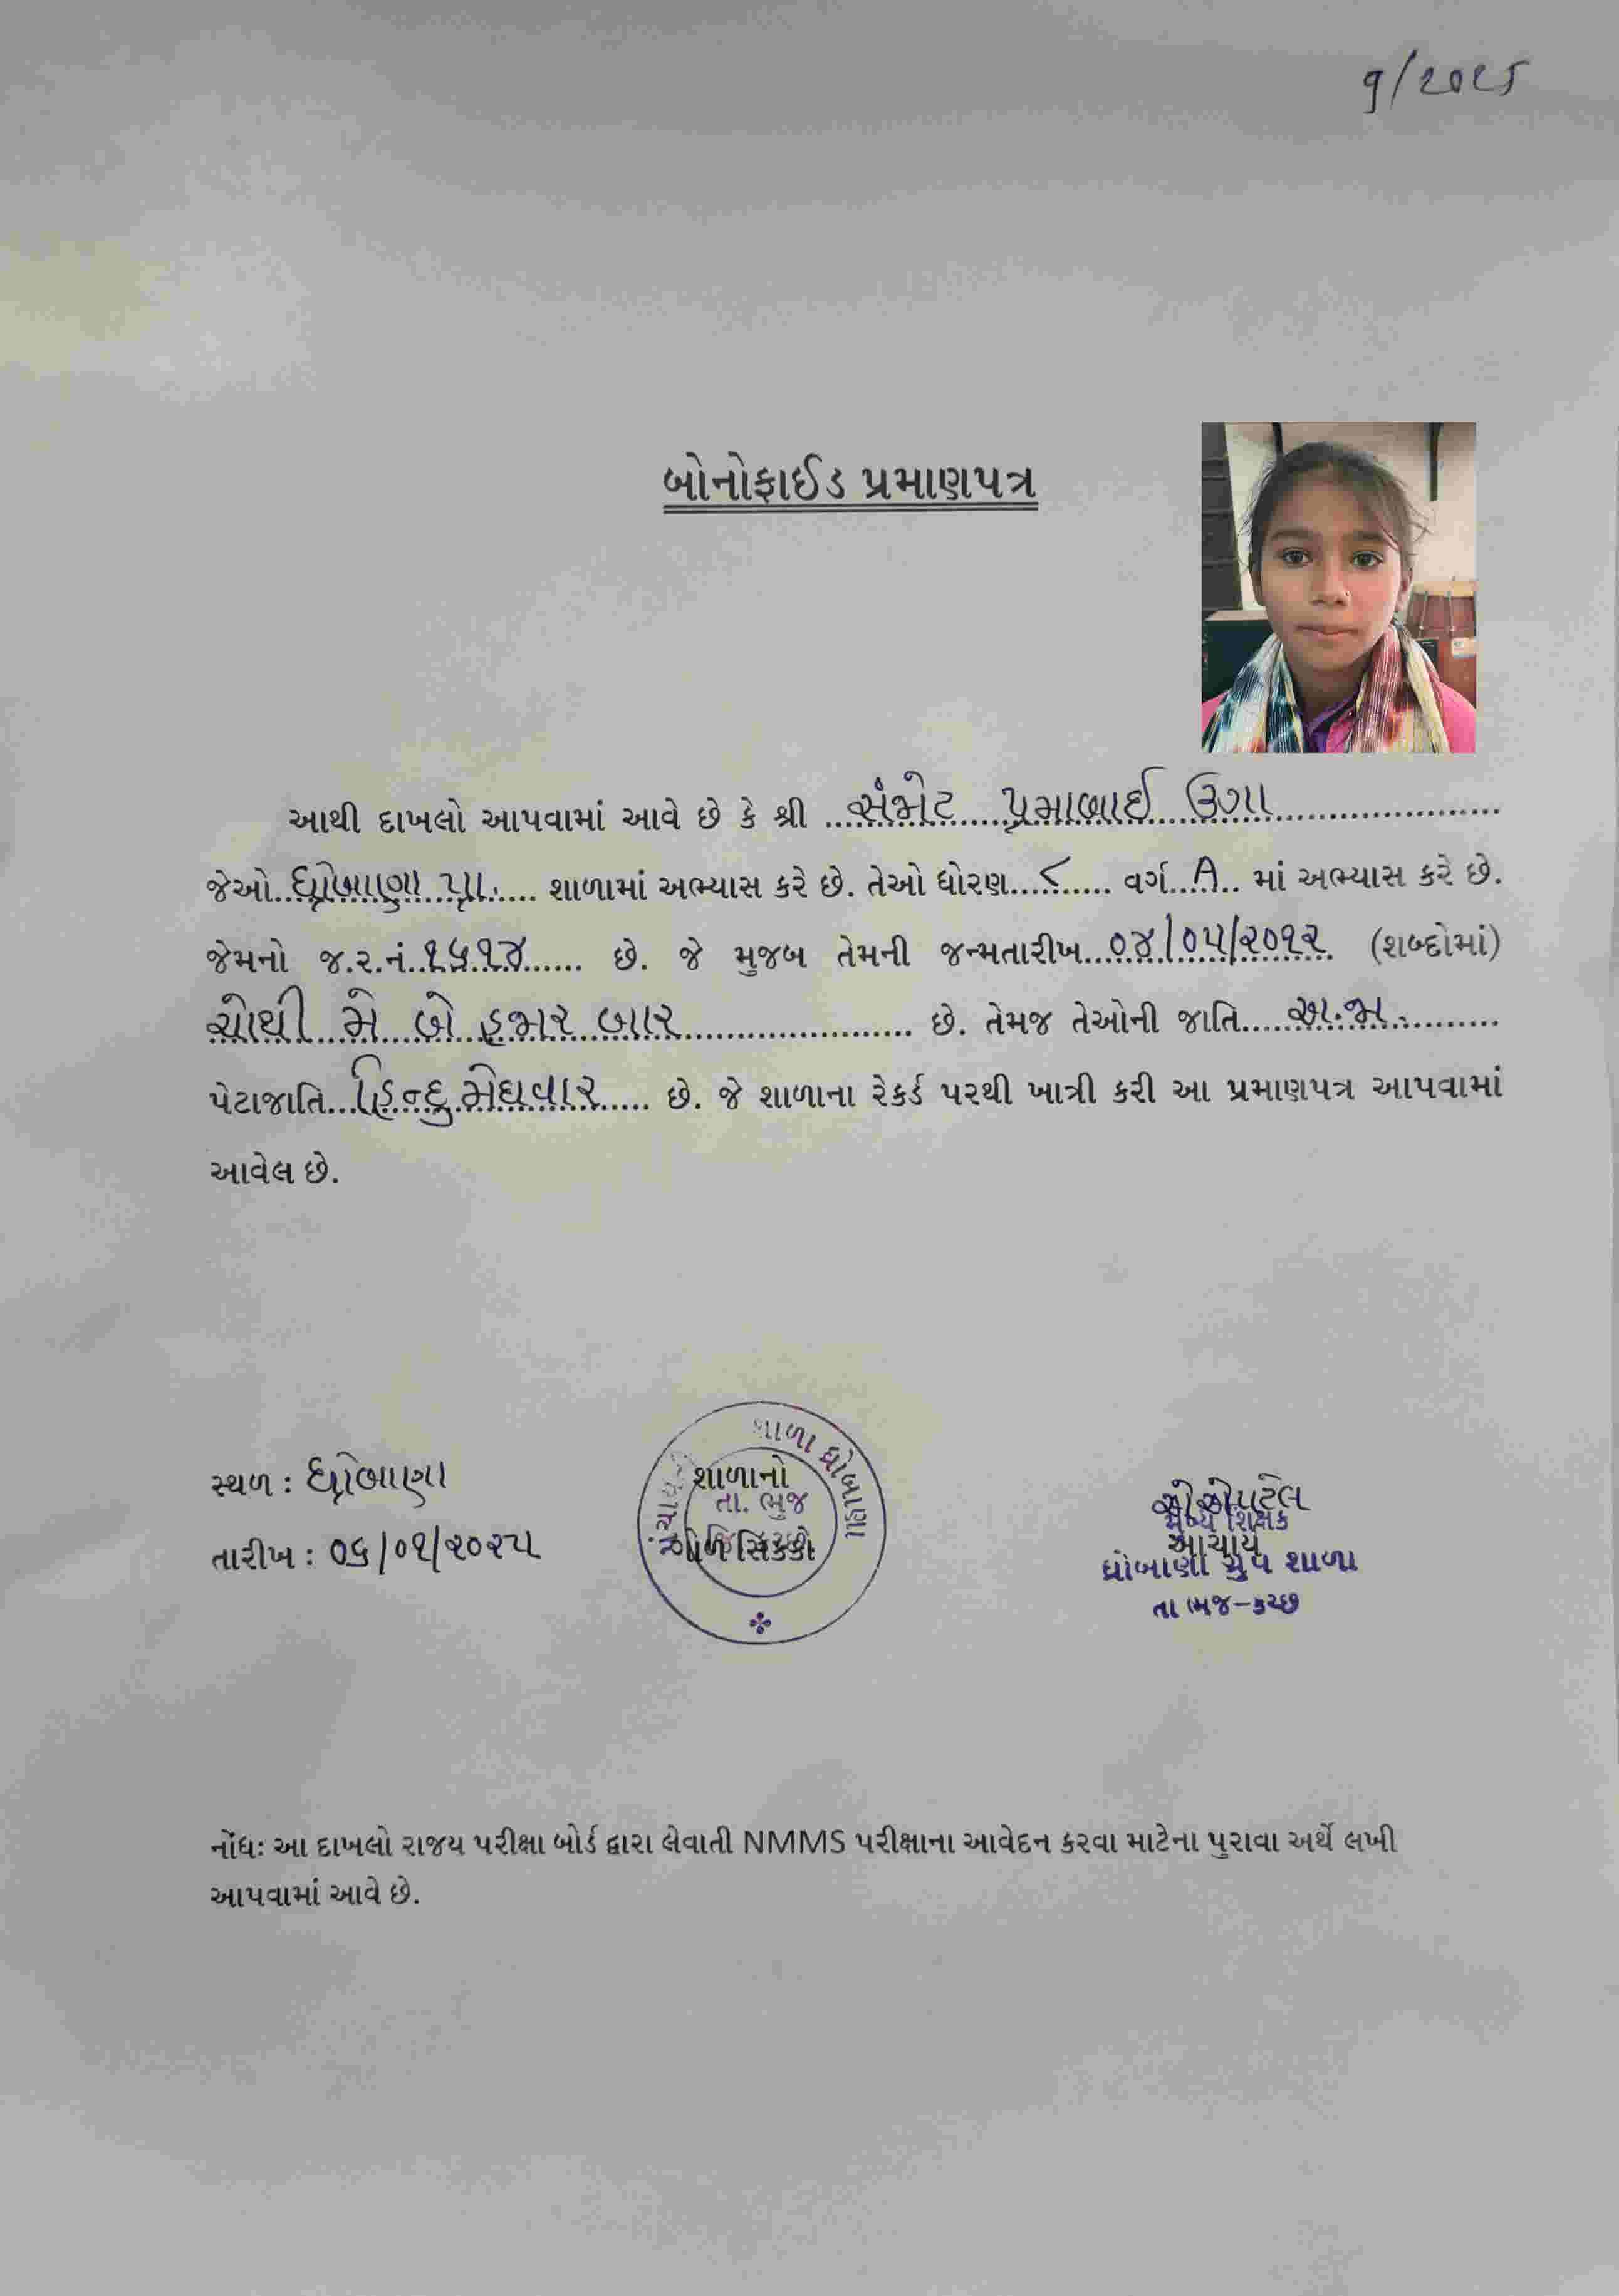 9/2025
બોનોફાઈડ પ્રમાણપત્ર
આથી દાખલો આપવામાં આવે છે કે શ્રી સંજોટ પ્રમાબાઈ ઉગા
જેઓ ધ્રોબાણા પ્રા. શાળામાં અભ્યાસ કરે છે. તેઓ ધોરણ ૮ વર્ગ A માં અભ્યાસ કરે છે.
જેમનો જ.ર.નં. ૧૫૧૪ છે. જે મુજબ તેમની જન્મતારીખ ૦૪/૦૫/૨૦૧૨ (શબ્દોમાં)
ચોથી મે બે હજાર બાર છે. તેમજ તેઓની જાતિ અ.જા.
પેટાજાતિ હિન્દુ મેઘવાર છે. જે શાળાના રેકર્ડ પરથી ખાત્રી કરી આ પ્રમાણપત્ર આપવામાં
આવેલ છે.
શાળા ધ્રોબાણા
શાળાનો
તા. ભુજ
ગોળ સિક્કો
સ્થળ : ધ્રોબાણા
તારીખ : ૦૬/૦૧/૨૦૨૫
મુખ્ય શિક્ષક
આચાર્ય
ધ્રોબાણા ગ્રુપ શાળા
તા ભુજ-કચ્છ
નોંધઃ આ દાખલો રાજય પરીક્ષા બોર્ડ દ્વારા લેવાતી NMMS પરીક્ષાના આવેદન કરવા માટેના પુરાવા અર્થે લખી
આપવામાં આવે છે.